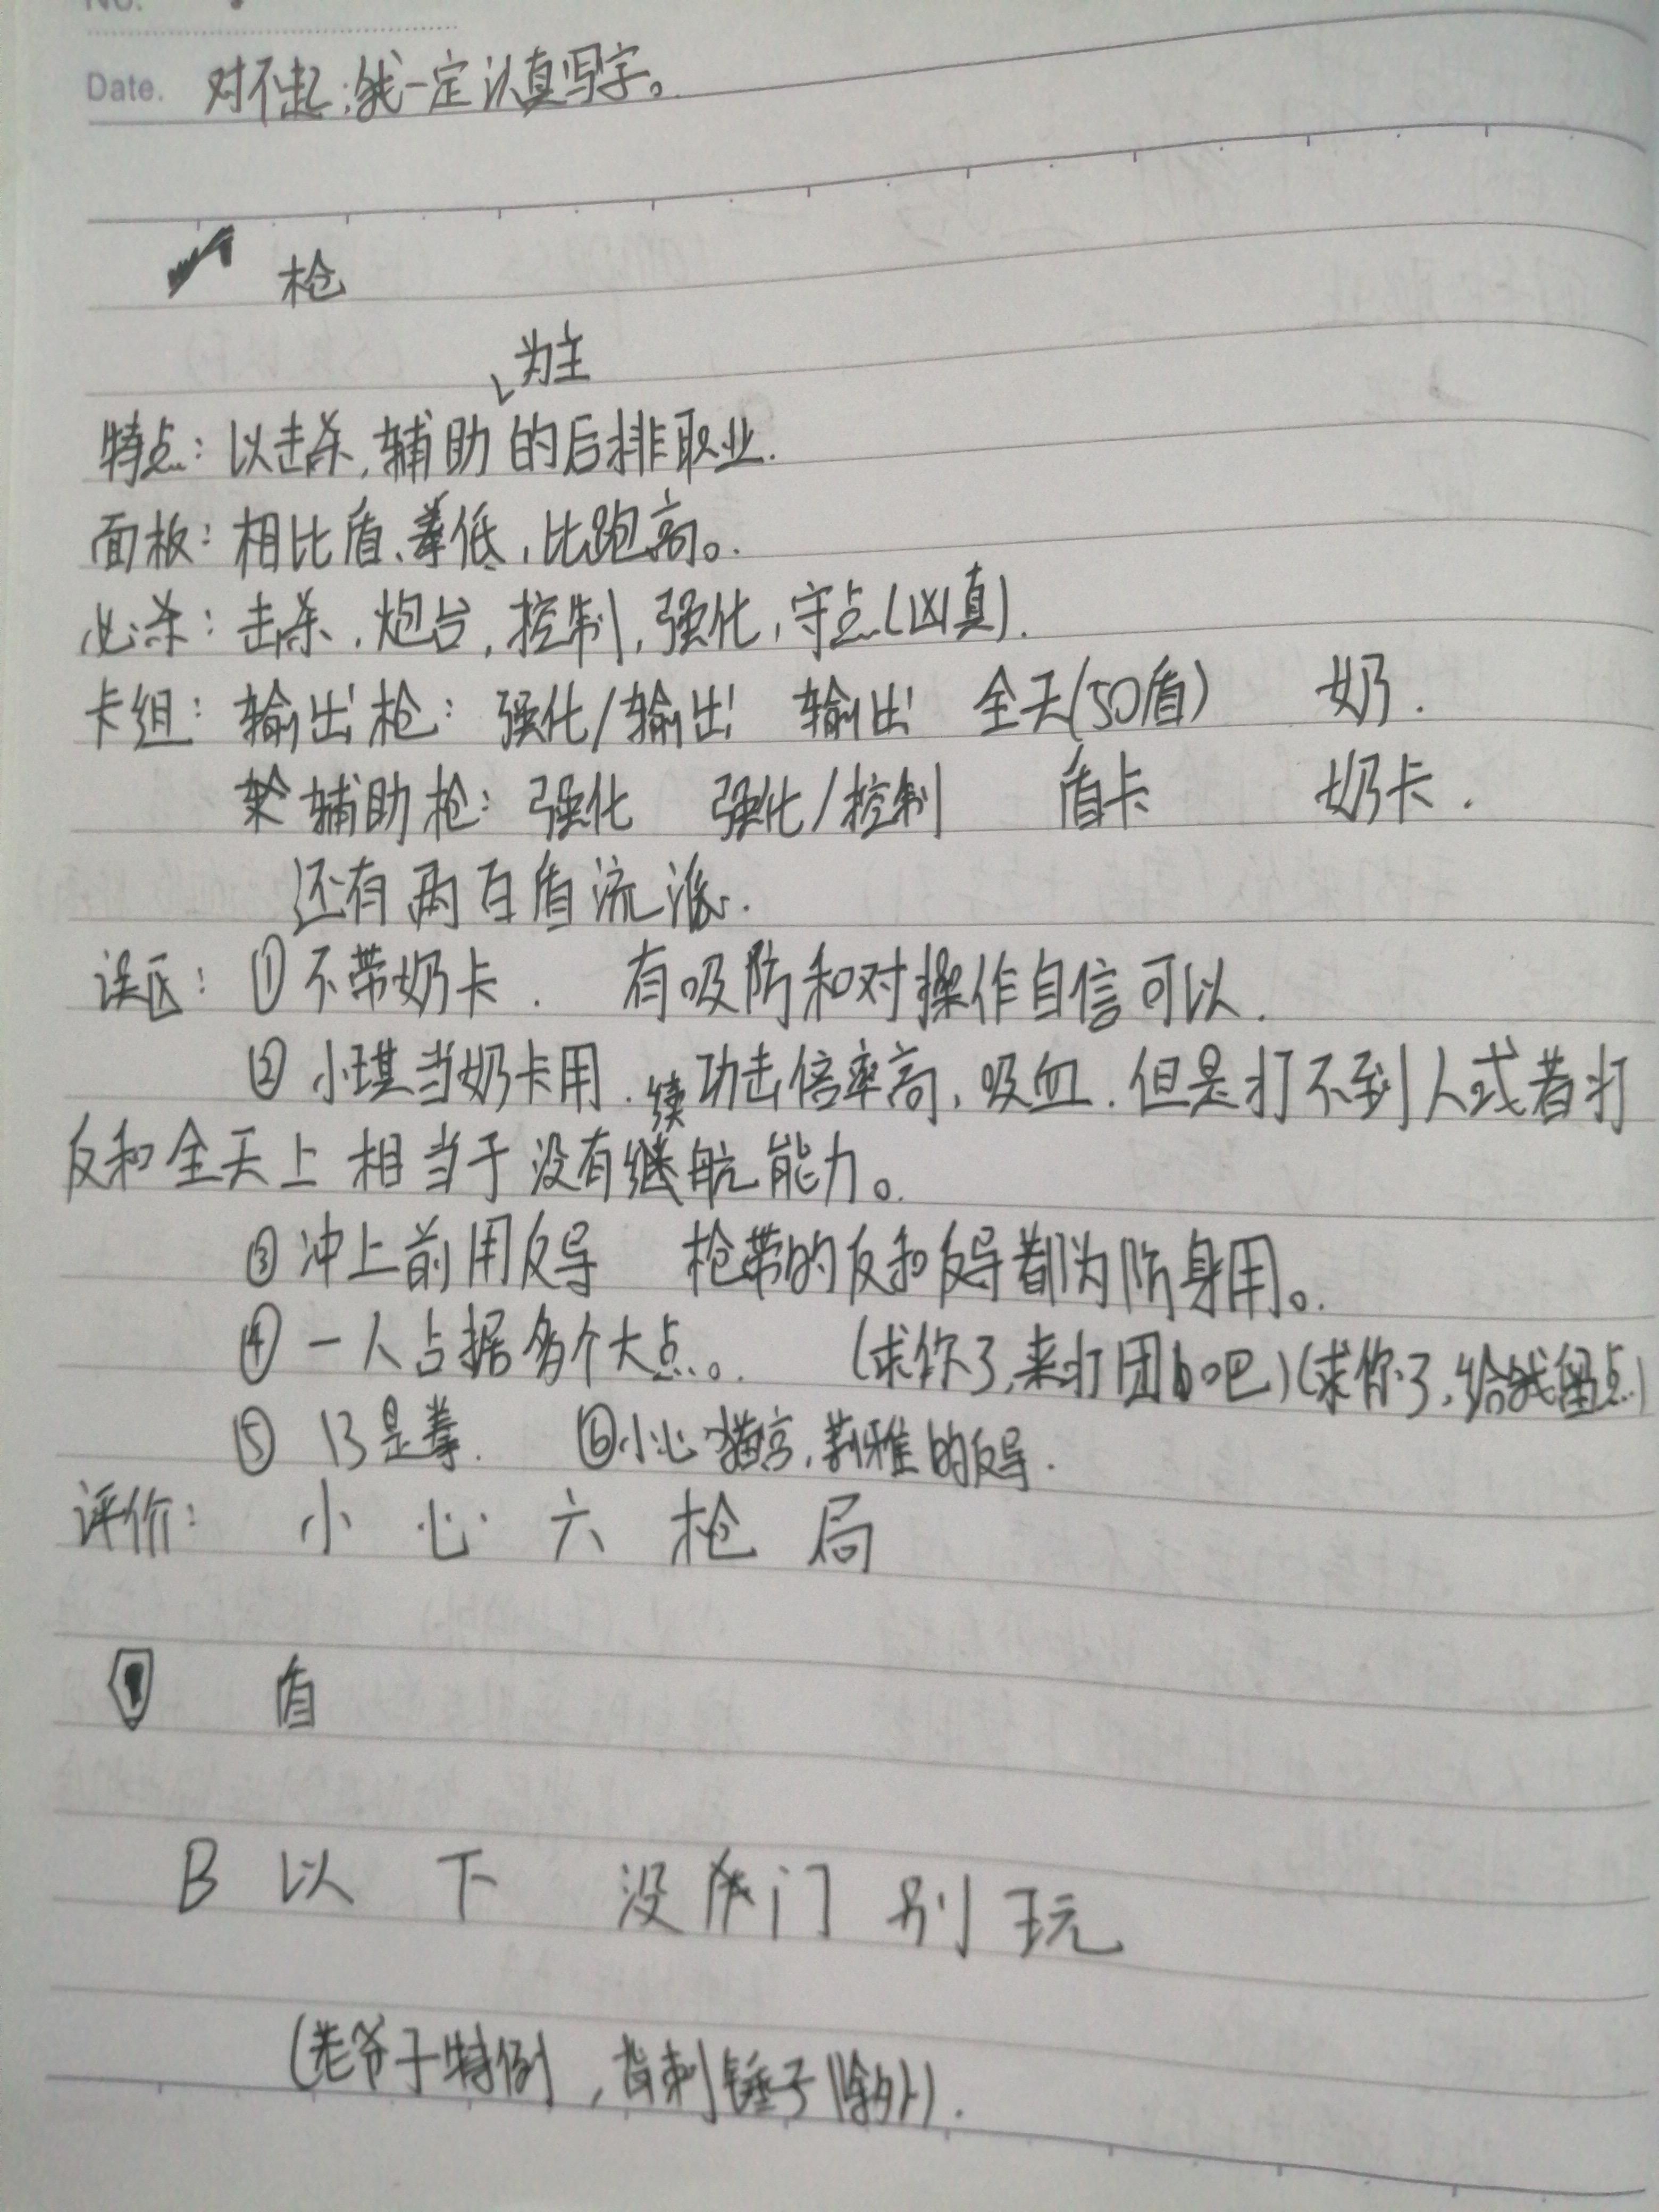 Date. 对不起,我一定认真写字。
枪
为主
特点: 以击杀,辅助的后排职业.
面板: 相比盾、拳低,比跑高。
必杀: 击杀,炮台,控制,强化,守点(凶真).
卡组: 输出枪: 强化/输出 输出 全天(50盾) 奶.
辅助枪: 强化 强化/控制 盾卡 奶卡.
还有两百盾流派.
误区: ①不带奶卡. 有吸防和对操作自信可以.
② 小琪当奶卡用. 功击倍率高,吸血.但是打不到人或者打
反和全天上相当于没有续航能力。
③ 冲上前用反导 枪带的反和反导都为防身用。
④ 一人占据多个大点。 (求你了,来打团吧)(求你了,给我留点)
⑤ 13是拳. ⑥小心猫宫,莉雅的反导.
评价: 小心六枪局
盾
B以下 没队门别玩
(老爷子特例,背刺锤子除外).